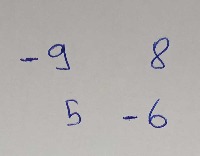 -9 8
5 -6